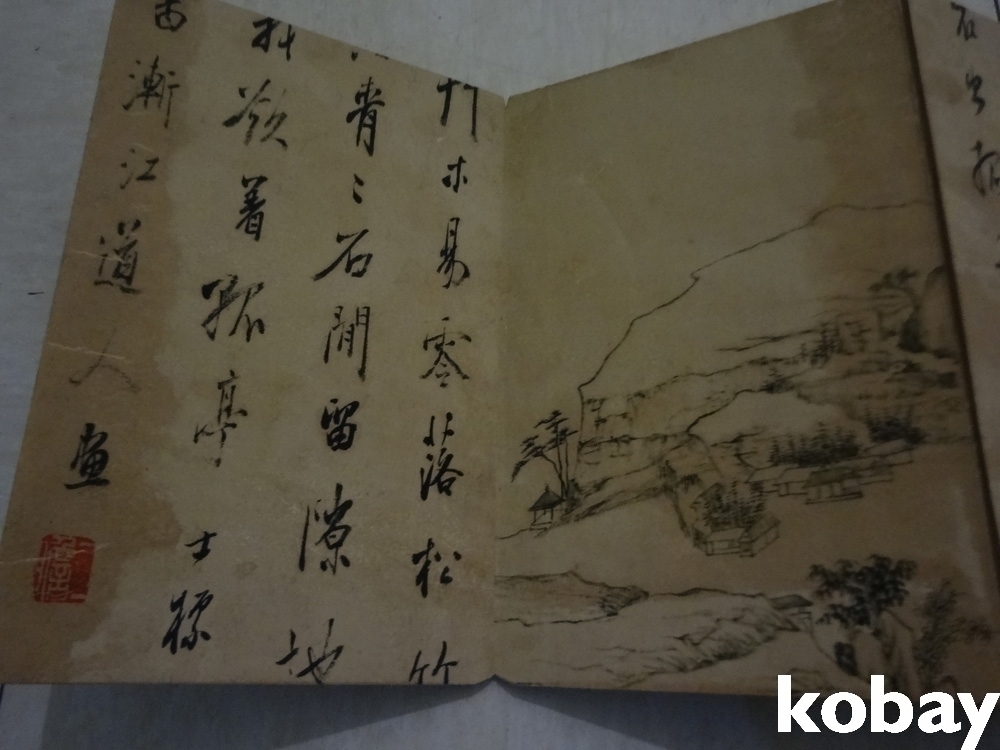 木易零落松竹
青〻石間留隙地
欲着孤亭 士標
漸江道人畫
kobay